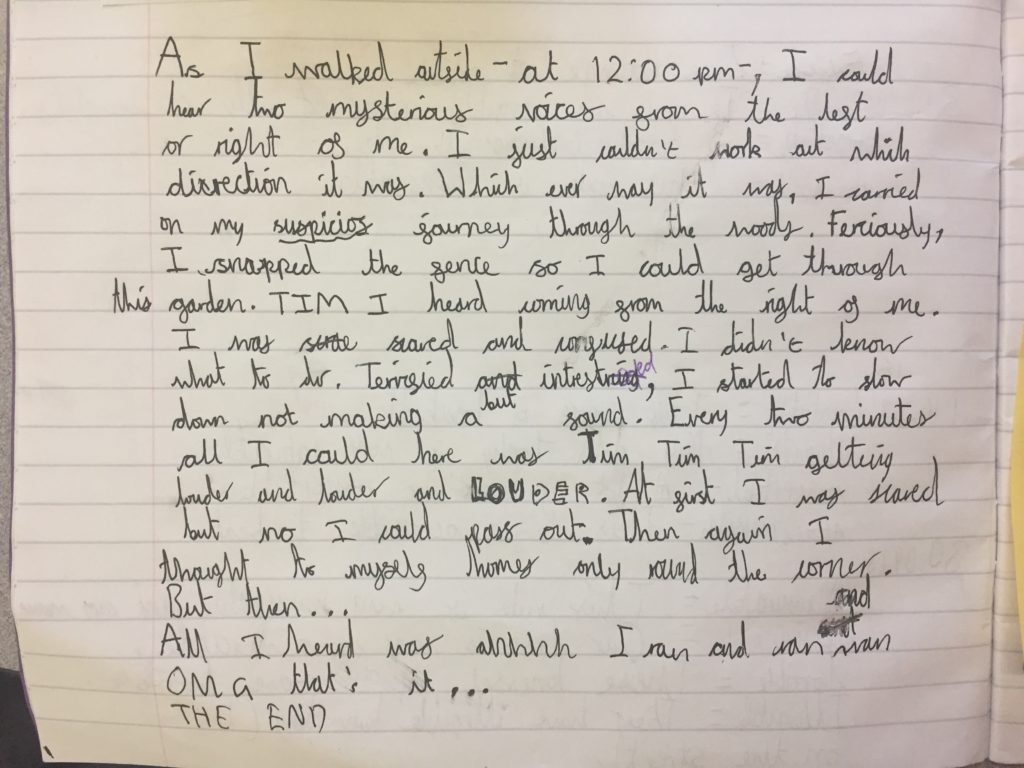 As I walked outside - at 12:00 pm-, I could
hear two mysterious voices from the left
or right of me. I just couldn't work out which
direction it was. Which ever way it was, I carried
on my suspicios journey through the woods. Ferciously,
I snapped the fence so I could get through
this garden. TIM I heard coming from the right of me.
I was scared and confused. I didn't know
what to do. Terrified but intrested, I started to slow
down not making a sound. Every two minutes
all I could here was Tim Tim Tim getting
louder and louder and LOUDER. At first I was scared
but no I could pass out. Then again I
thought to myself homes only round the corner.
But then...
All I heard was ahhhhh I ran and ran and ran
OMG that's it...
THE END